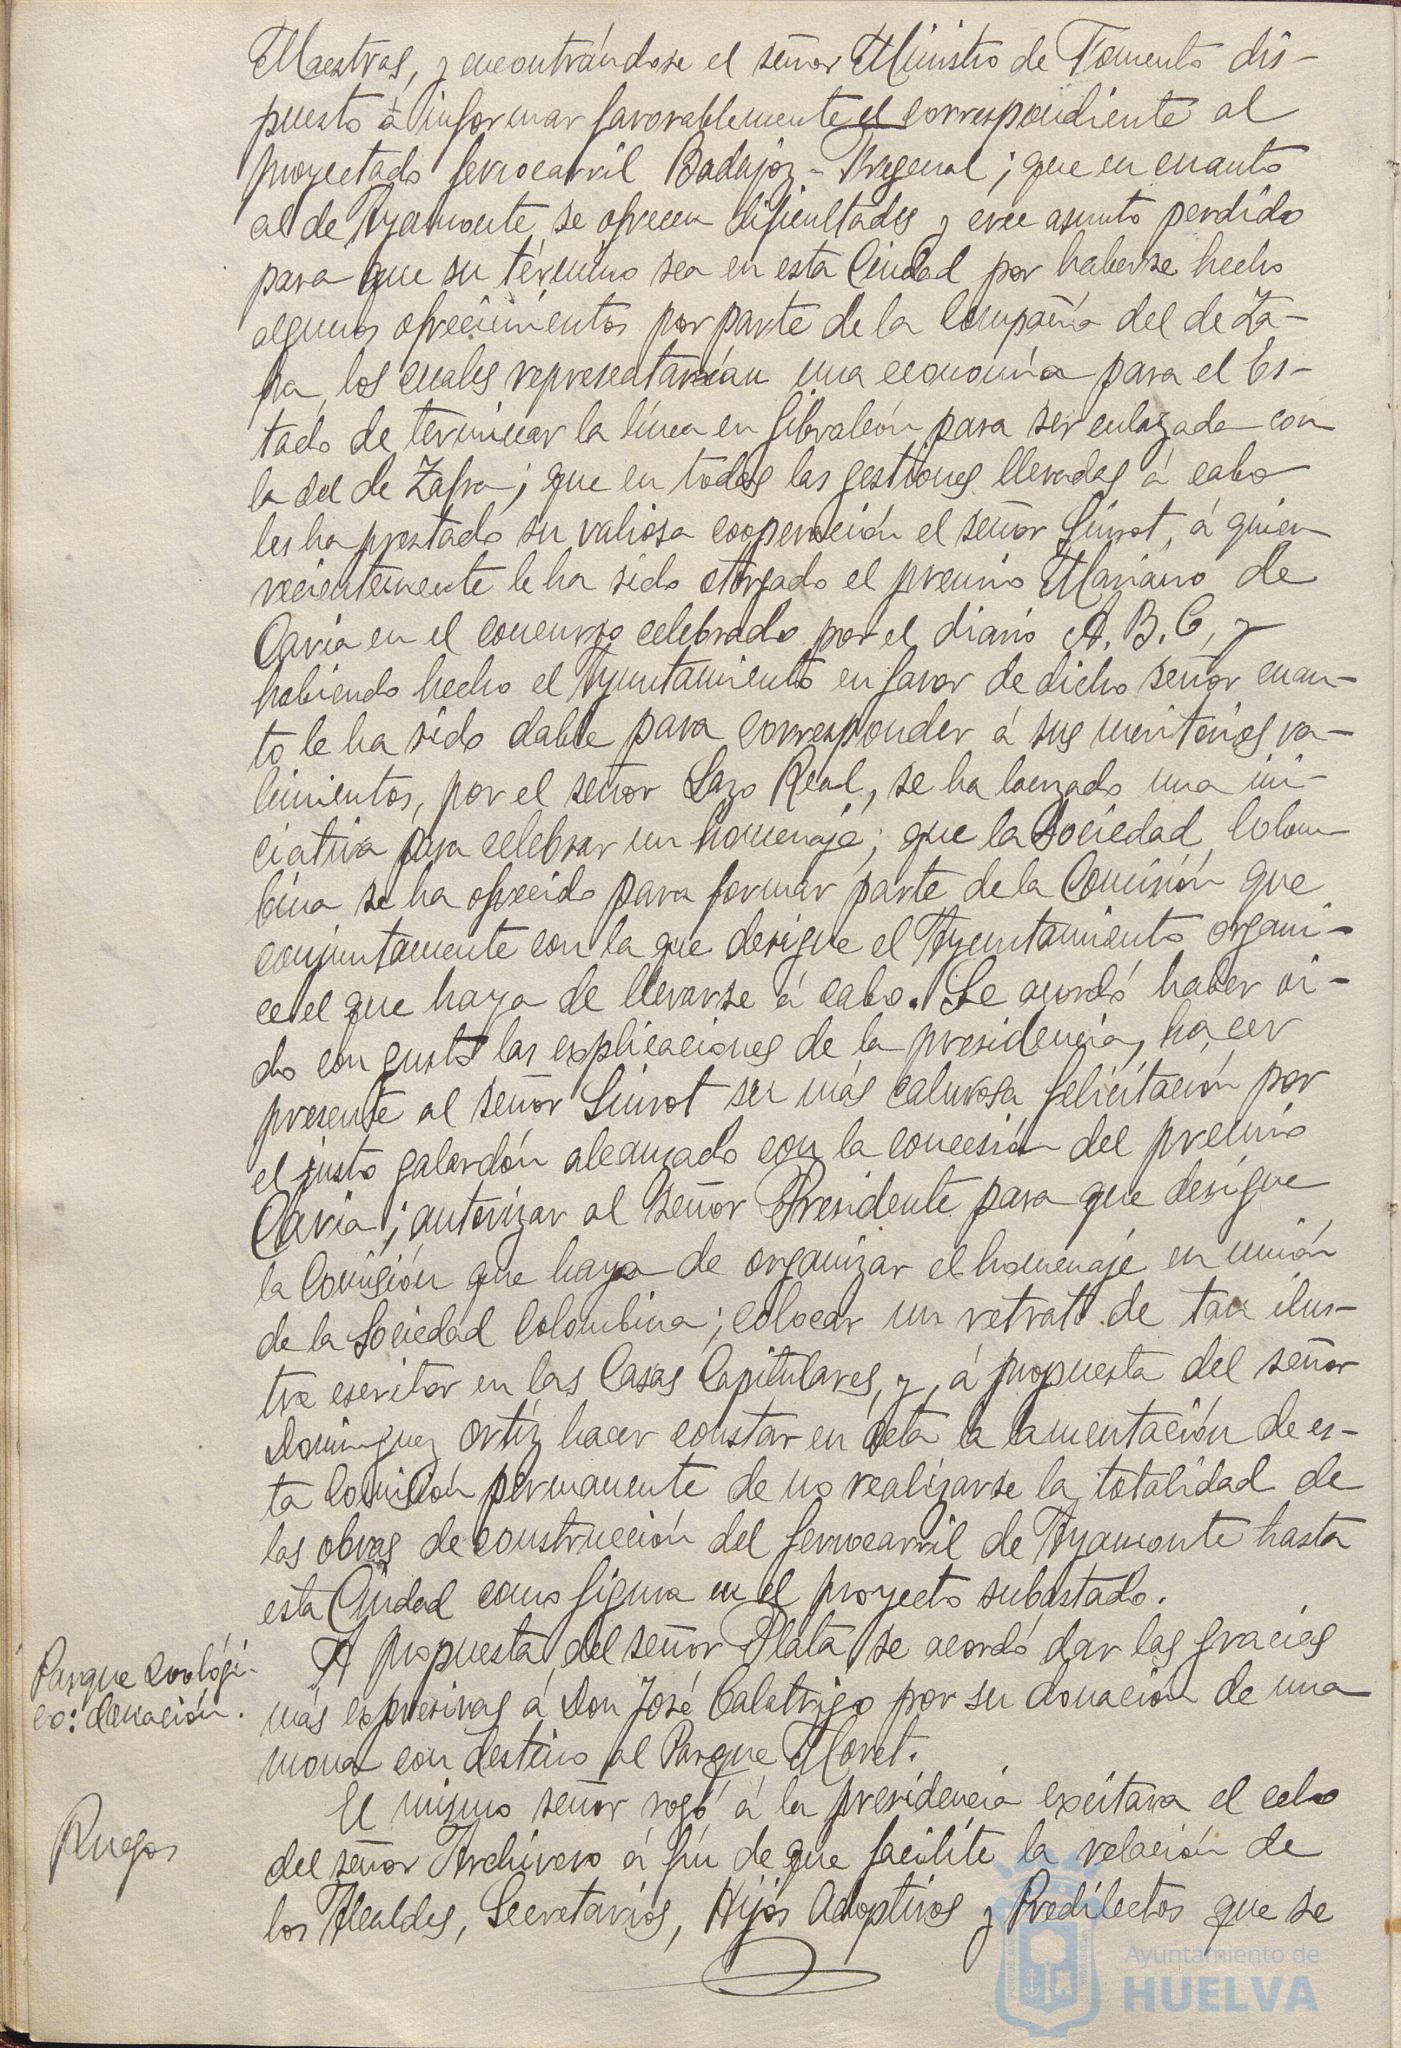 Maestras, y encontrándose el señor Ministro de Fomento dis-
puesto á informar favorablemente el correspondiente al
proyectado ferrocarril Badajoz-Fregenal; que en cuanto
al de Ayamonte, se ofrecen dificultades y cree asunto perdido
para que su término sea en esta Ciudad por haberse hecho
algunos ofrecimientos por parte de la Compañía del de Za-
fra, los cuales representarían una economía para el Es-
tado de terminar la línea en Gibraleón para ser enlazada con
la del de Zafra; que en todas las gestiones llevadas á cabo
les ha prestado su valiosa cooperación el señor Siurot, á quien
recientemente le ha sido otorgado el premio Mariano de
Cavia en el concurso celebrado por el diario A.B.C, y
habiendo hecho el Ayuntamiento en favor de dicho señor cuan-
to le ha sido dable para corresponder á sus meritorios va-
limientos, por el señor Lazo Real, se ha lanzado una ini-
ciativa para celebrar un homenaje; que la Sociedad Colom-
bina se ha ofrecido para formar parte de la Comisión que
conjuntamente con la que designe el Ayuntamiento organi-
ce el que haya de llevarse á cabo. Se acordó haber oi-
do con gusto las explicaciones de la presidencia, hacer
presente al señor Siurot su más calurosa felicitación por
el justo galardón alcanzado con la concesión del premio
Cavia; autorizar al señor Presidente para que designe
la Comisión que haya de organizar el homenaje en unión
de la Sociedad Colombina; colocar un retrato de tan ilus-
tre escritor en las Casas Capitulares, y, á propuesta del señor
Domínguez Ortíz hacer constar en acta la lamentación de es-
ta Comisión permanente de no realizarse la totalidad de
las obras de construcción del ferrocarril de Ayamonte hasta
esta Ciudad como figura en el proyecto subastado.
Parque Zoológi-
co: donación.
A propuesta del señor Plata se acordó dar las gracias
más expresivas á Don José Calatrigo por su donación de una
mona con destino al Parque Moret.
Ruegos
El mismo señor rogó á la presidencia excitara el celo
del señor Archivero á fin de que facilite la relación de
los Alcaldes, Secretarios, Hijos Adoptivos y Predilectos que se
Ayuntamiento de
HUELVA